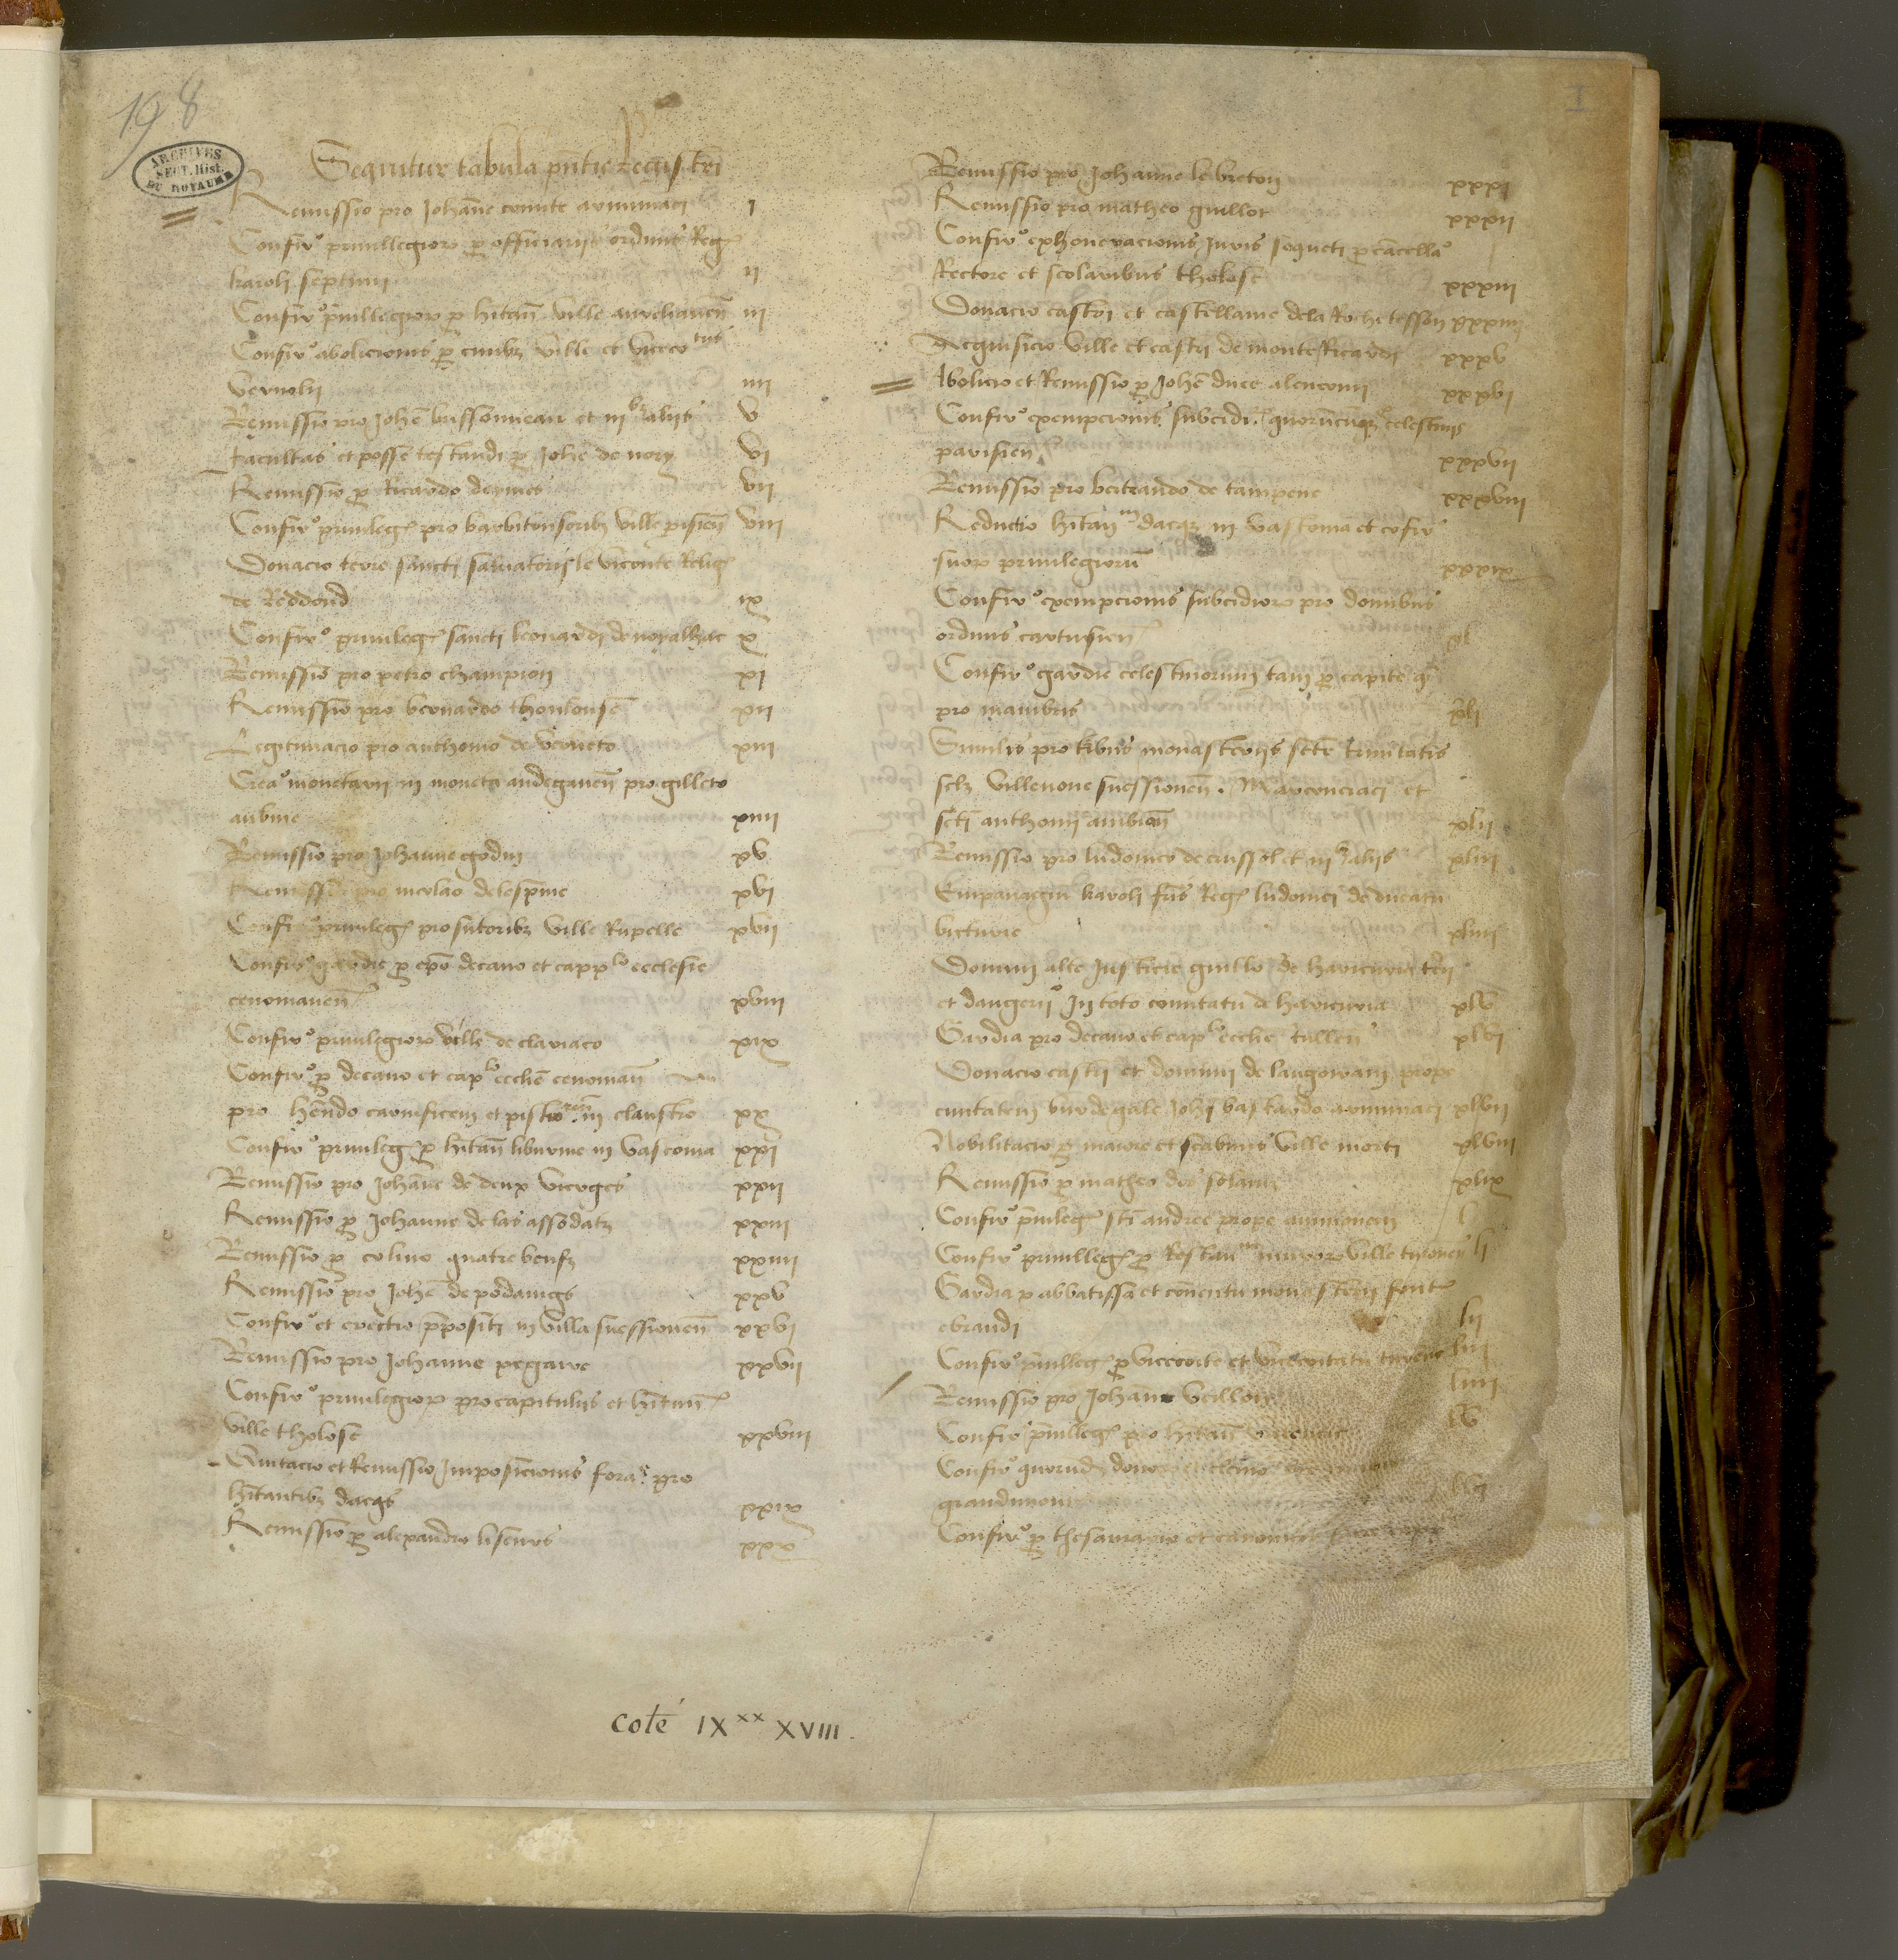 198
ARCHIVES
SECT. Hist.
DU ROYAUME
I
Sequitur tabula pntis Registri
Remissio pro Johanne comite armaniaci I
Confiro privillegiorum per officiariis ordinis Reg
karoli septimi II
Confiro privillegiorum per hitan ville aurelianen III
Confiro abolicionis per civibz ville et viceco tus
Vernolii IIII
Remissio pro Johe bussonneau et IIIbz aliis V
Facultas et posse testandi per Johe de nory VI
Remissio per Ricardo VII
Confiro privileg pro barbitonsoribz ville pisien VIII
Donacio terre sancti salvatoris le viconte Relig
de Reddond IX
Confiro privileg sancti leonardi de X
Remissio pro petro champion XI
Remissio pro bernardo thoulouse XII
Legitimacio pro anthonio de verneto XIII
Crea monetarii in moneta andegaven pro gilleto
aubine XIIII
Remissio pro Johanne godin XV
Remissio pro nicolao delespine XVI
Confiro privileg pro sutoribz ville Rupelle XVII
Confiro gardie per epo decano et capplo ecclesie
cenomanen XVIII
Confiro privilegiorum ville de claviaco XIX
Confiro per decano et caplo ecclie cenoman
pro hendo carnificem et pistorem in claustro XX
Confiro privileg per hitan liburnie in vasconia XXI
Remissio pro Johanne de deux vierges XXII
Remissio per Johanne de las assodatz XXIII
Remissio per colino quatrebeufz XXIIII
Remissio pro Johe de podanigs XXV
Confiro et erectio ppositi in villa suessionen XXVI
Remissio pro Johanne pegaire XXVII
Confiro privilegiorum pro capitulis et hitan
ville tholose XXVIII
Quitacio et Remissio Imposicionis fora. pro
hitantibz dacqs XXIX
Remissio per alexandro XXX
Remissio pro Johanne le breton XXXI
Remissio pro matheo guillot XXXII
Confiro exhoneracionis Juris sequeti per cacella
Rectore et scolaribus tholose XXXIII
Donacio castri et castellanie de la Roche tesson XXXIIII
Acquisicio ville et castri de monte Ricardi XXXV
Abolicio et Remissio per Johe duce alenconii XXXVI
Confiro exempcionis subcidi. quorucuqz celestinis
parisien XXXVII
Remissio pro bertrando de tampene XXXVIII
Reductio hitan dacqz in vasconia et cofir
suorum privilegioru XXXIX
Confiro exempcionis subcidiorum pro domibus
ordinis cartusien XL
Confiro gardie celestinorum tam per capite q
pro manibus XLI
Similis pro tribus monasteriis scte trinitatis
sclz villenove suessionen. Marconciaci et
scti anthonii ambian XLII
Remissio pro ludovico de crussol et IIIbz aliis XLIII
Empanagiu karoli fris Reg ludovici de ducatu
biturie XLIIII
Domini alte Justicie guillo de haricuria
et dangerii In toto comitatu de haricuria XLV
Gardia pro decano et caplo ecclie tullen XLVI
Donacio castri et dominii de langoiram prope
civitatem burdegale Johi bastardo armaniaci XLVII
Nobilitacio per maiore et scabinis ville niorti XLVIII
Remissio per matheo des solans XLIX
Confiro privileg sti andree prope avinionem L
Confiro privilleg per ville LI
Gardia per abbatissa et coventu monasterii font
ebraudi LII
Confiro privilleg per vicecomite et vicecomitatu turene LIII
Remissio pro Johanne veillon LIIII
Confiro privilleg pro hitan LV
Confiro quorud
grandimon LVI
Confiro per thesaurario et canonicis
coté IXxx XVIII.